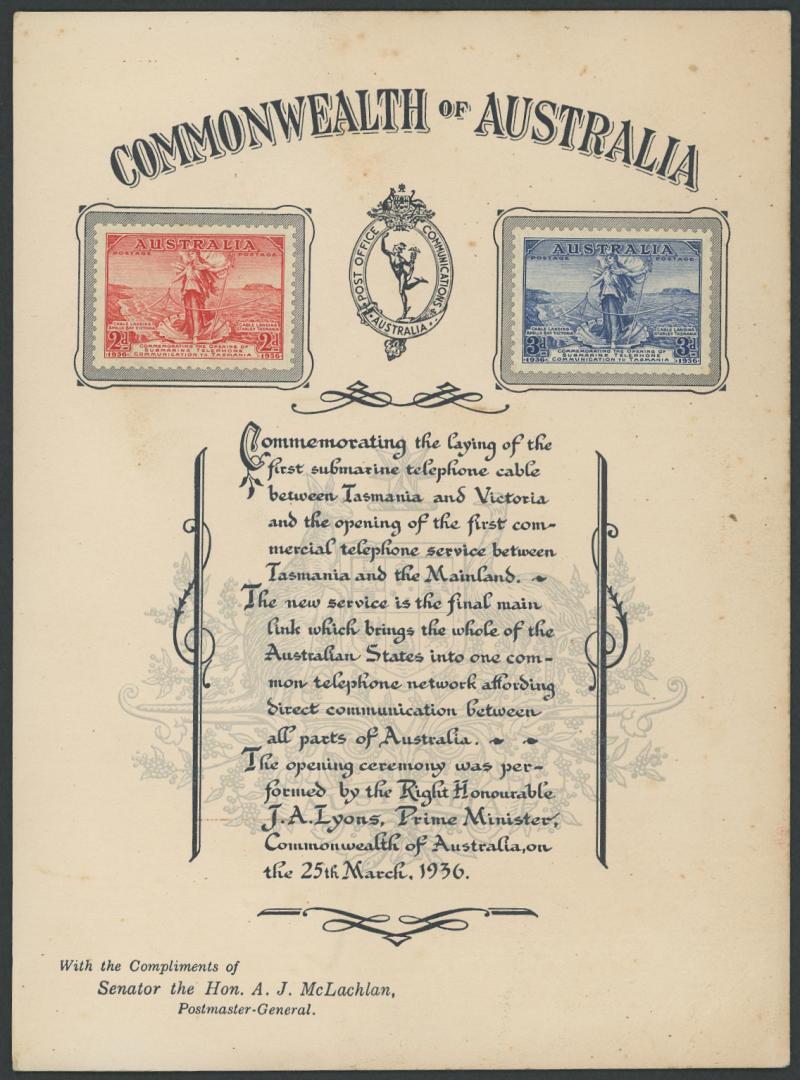 COMMONWEALTH OF AUSTRALIA
AUSTRALIA
POSTAGE POSTAGE
CABLE LANDING APOLLO BAY VICTORIA
CABLE LANDING STANLEY TASMANIA
2D 2D
COMMEMORATING THE OPENING OF
SUBMARINE TELEPHONE
1936 COMMUNICATION TO TASMANIA 1936
POST OFFICE COMMUNICATIONS
AUSTRALIA
AUSTRALIA
POSTAGE POSTAGE
CABLE LANDING APOLLO BAY VICTORIA
CABLE LANDING STANLEY TASMANIA
3D 3D
COMMEMORATING THE OPENING OF
SUBMARINE TELEPHONE
1936 COMMUNICATION TO TASMANIA 1936
Commemorating the laying of the
first submarine telephone cable
between Tasmania and Victoria
and the opening of the first com-
mercial telephone service between
Tasmania and the Mainland.
The new service is the final main
link which brings the whole of the
Australian States into one com-
mon telephone network affording
direct communication between
all parts of Australia.
The opening ceremony was per-
formed by the Right Honourable
J.A.Lyons, Prime Minister,
Commonwealth of Australia, on
the 25th March, 1936.
With the Compliments of
Senator the Hon. A. J. McLachlan,
Postmaster-General.